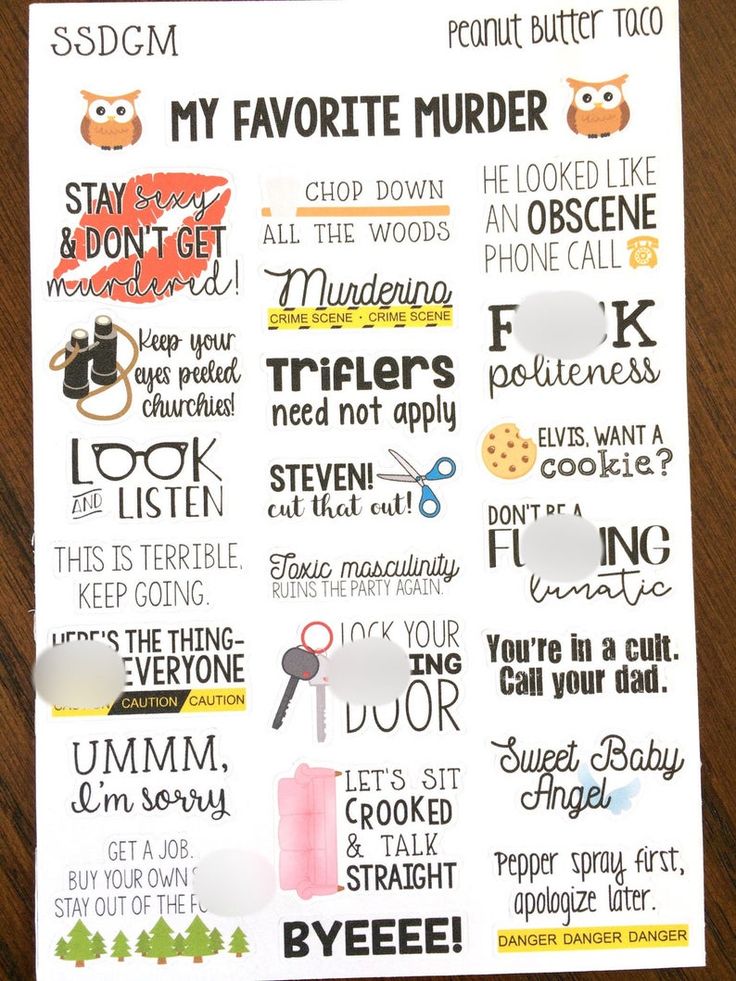 SSDGM
Peanut Butter Taco
MY FAVORITE MURDER
STAY sexy
& DON'T GET
murdered!
Keep your
eyes peeled
churchies!
LOOK
AND LISTEN
THIS IS TERRIBLE,
KEEP GOING.
HERE'S THE THING-
EVERYONE
CAUTION CAUTION
UMMM,
I'm sorry
GET A JOB.
BUY YOUR OWN
STAY OUT OF THE
CHOP DOWN
ALL THE WOODS
Murderino
CRIME SCENE · CRIME SCENE
TRIFLERS
need not apply
STEVEN!
cut that out!
Toxic masculinity
RUINS THE PARTY AGAIN.
LOCK YOUR
ING
DOOR
LET'S SIT
CROOKED
& TALK
STRAIGHT
BYEEEE!
HE LOOKED LIKE
AN OBSCENE
PHONE CALL
F K
politeness
ELVIS, WANT A
cookie?
DON'T BE A
FU ING
lunatic
You're in a cult.
Call your dad.
Sweet Baby
Angel
Pepper spray first,
apologize later.
DANGER DANGER DANGER